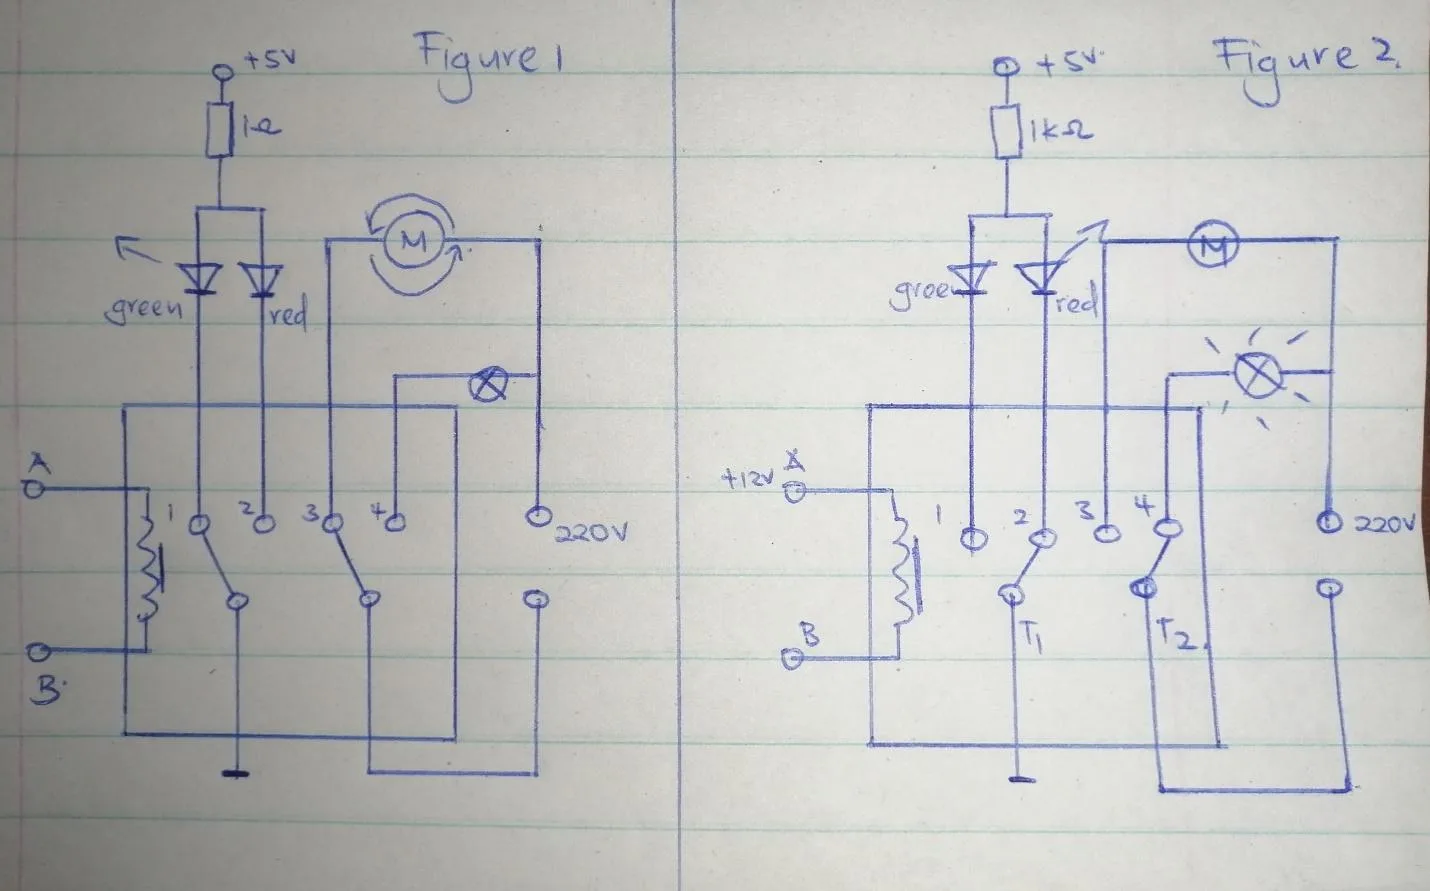 Figure 1
+5V
1Ω
M
green
red
A
1
2
3
4
220V
B
Figure 2.
+5V
1kΩ
M
green
red
+12V A
1
2
3
4
220V
B
T1
T2